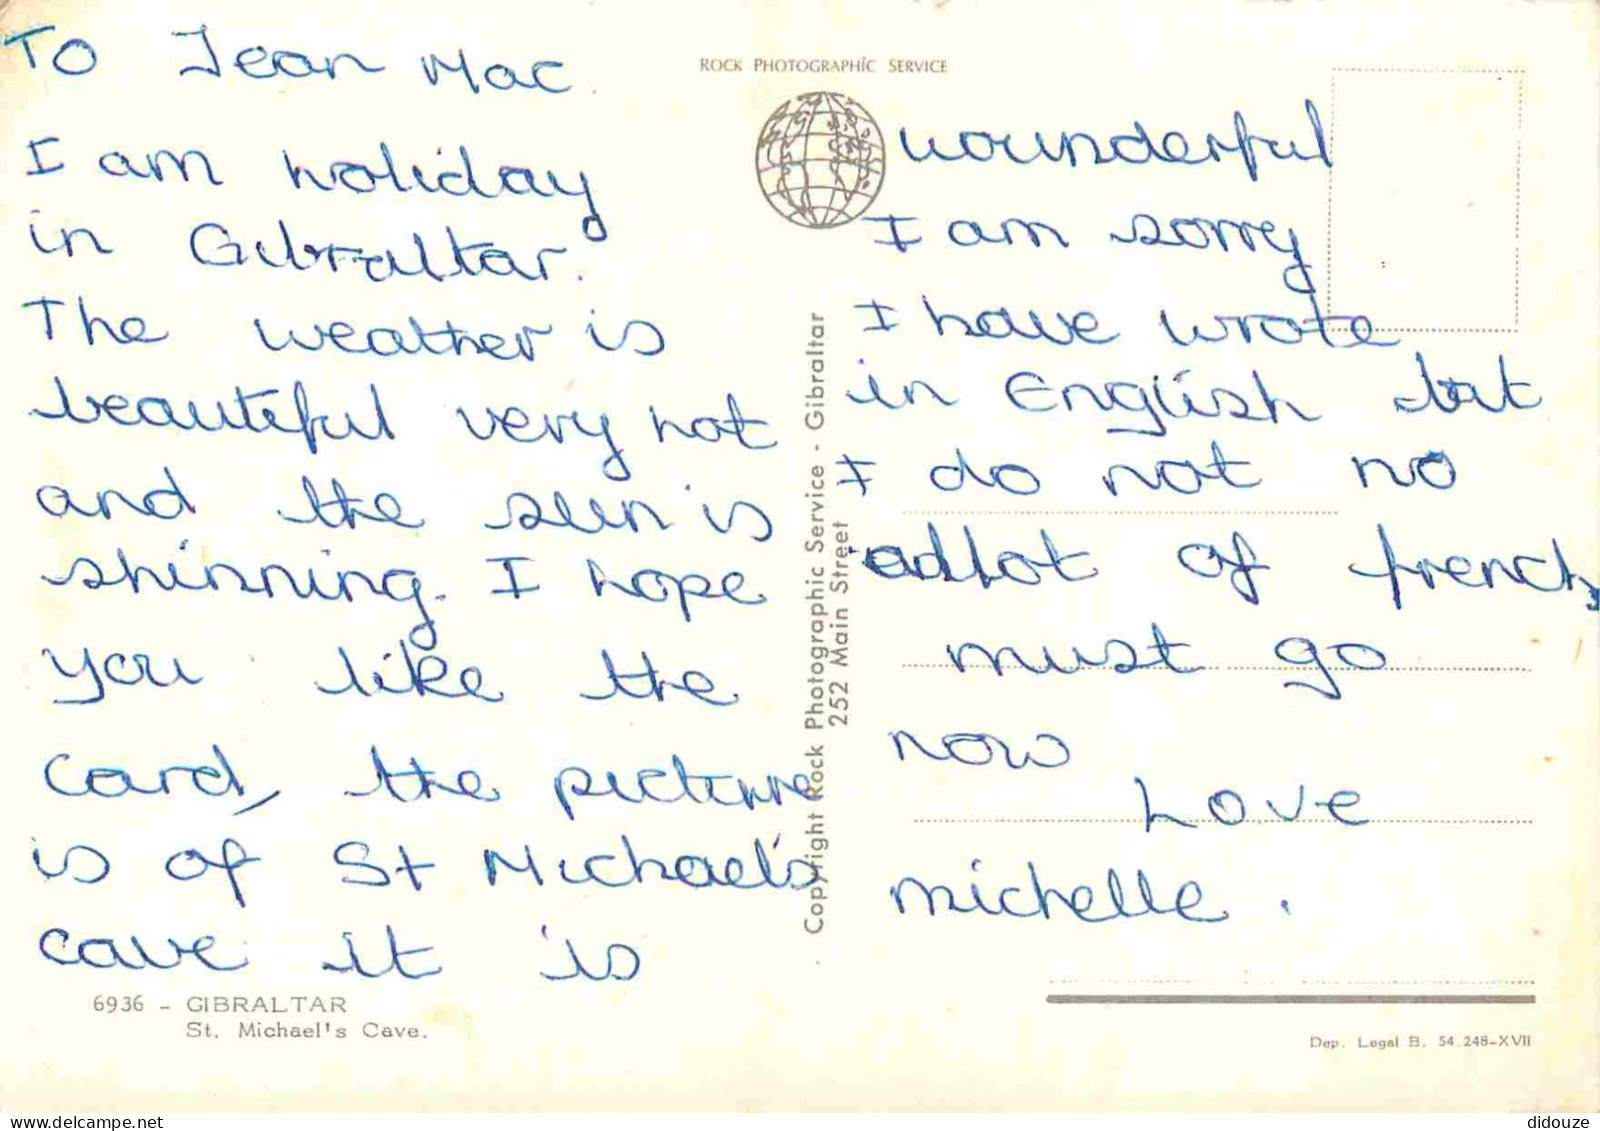 To Jean Mac.
I am holiday
in Gibraltar.
The weather is
beautiful very hot
and the sun is
shinning. I hope
you like the
card, the picture
is of St Michael's
cave it is
6936 - GIBRALTAR
St. Michael's Cave.
ROCK PHOTOGRAPHIC SERVICE
Copyright Rock Photographic Service - Gibraltar
252 Main Street
wounderful
I am sorry
I have wrote
in English but
I do not no
allot of french
must go
now
Love
michelle.
Dep. Legal B. 54.248-XVII
didouze